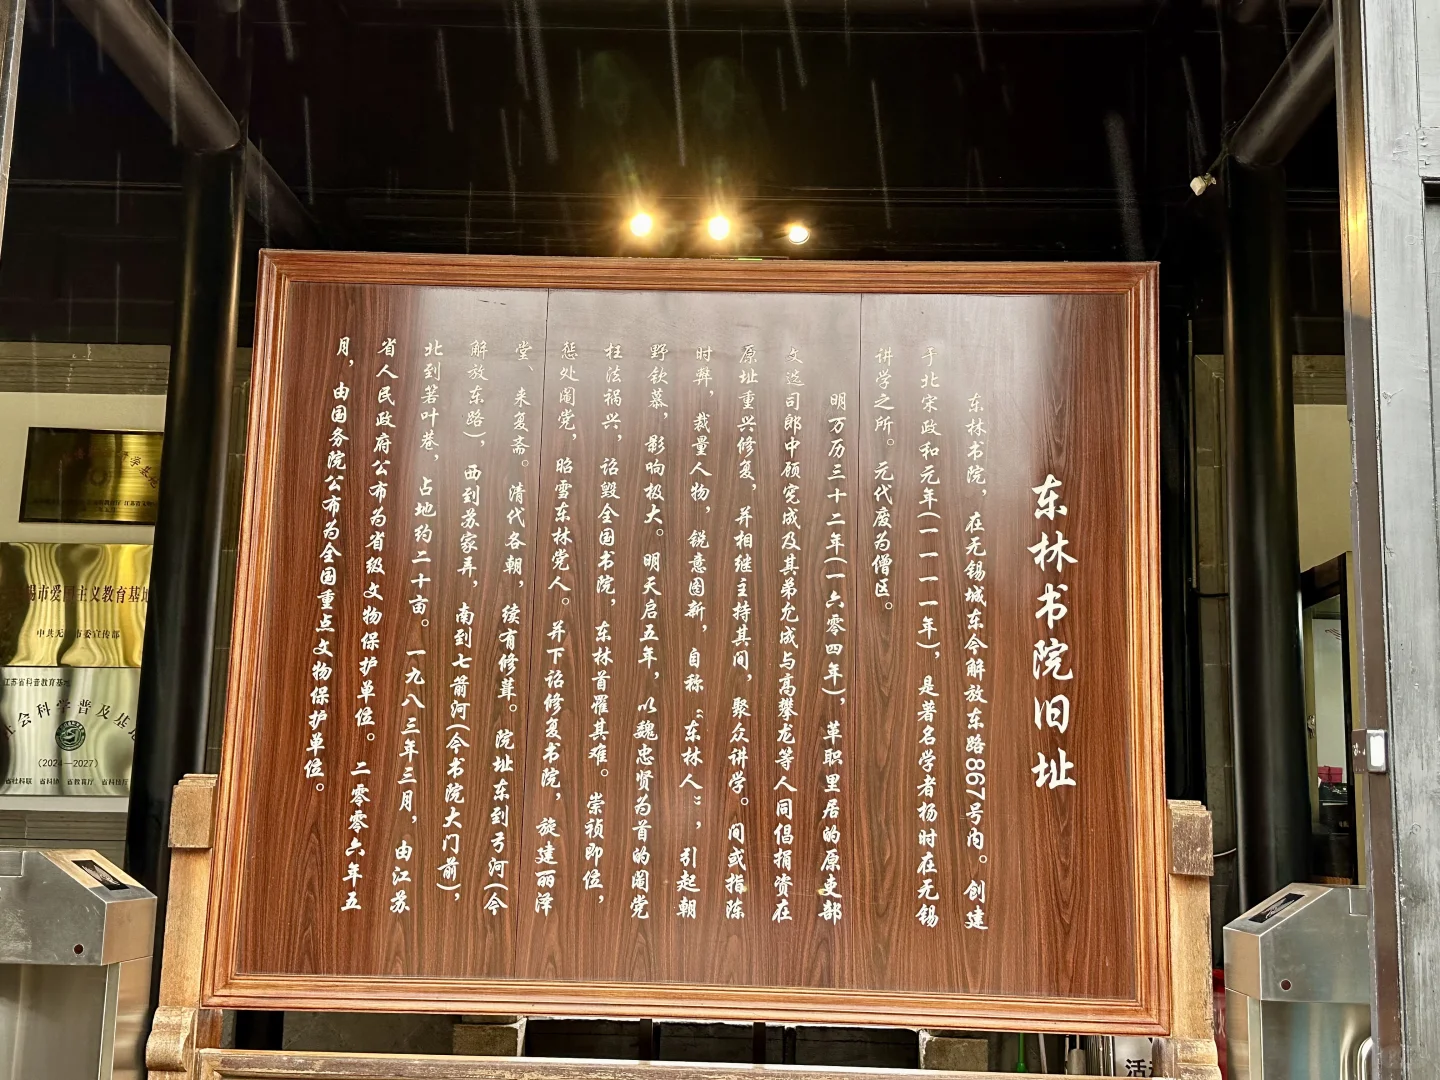 东林书院旧址
东林书院，在无锡城东今解放东路867号内。创建
于北宋政和元年（一一一一年），是著名学者杨时在无锡
讲学之所。元代废为僧区。
明万历三十二年（一六零四年），革职里居的原吏部
文选司郎中顾宪成及其弟允成与高攀龙等人同倡捐资在
原址重兴修复，并相继主持其间，聚众讲学。间或指陈
时弊，裁量人物，锐意图新，自称“东林人”，引起朝
野钦慕，影响极大。明天启五年，以魏忠贤为首的阉党
枉法祸兴，诏毁全国书院，东林首罹其难。崇祯即位，
惩处阉党，昭雪东林党人。并下诏修复书院，旋建丽泽
堂、来复斋。清代各朝，续有修葺。院址东到弓河（今
解放东路），西到苏家弄，南到七箭河（今书院大门前），
北到箬叶巷，占地约二十亩。一九八三年三月，由江苏
省人民政府公布为省级文物保护单位。二零零六年五
月，由国务院公布为全国重点文物保护单位。
锡市爱国主义教育基地
中共无锡市委宣传部
江苏省科普教育基地
社会科学普及基地
（2024—2027）
省社科联 省科协 省教育厅 省科技厅
活